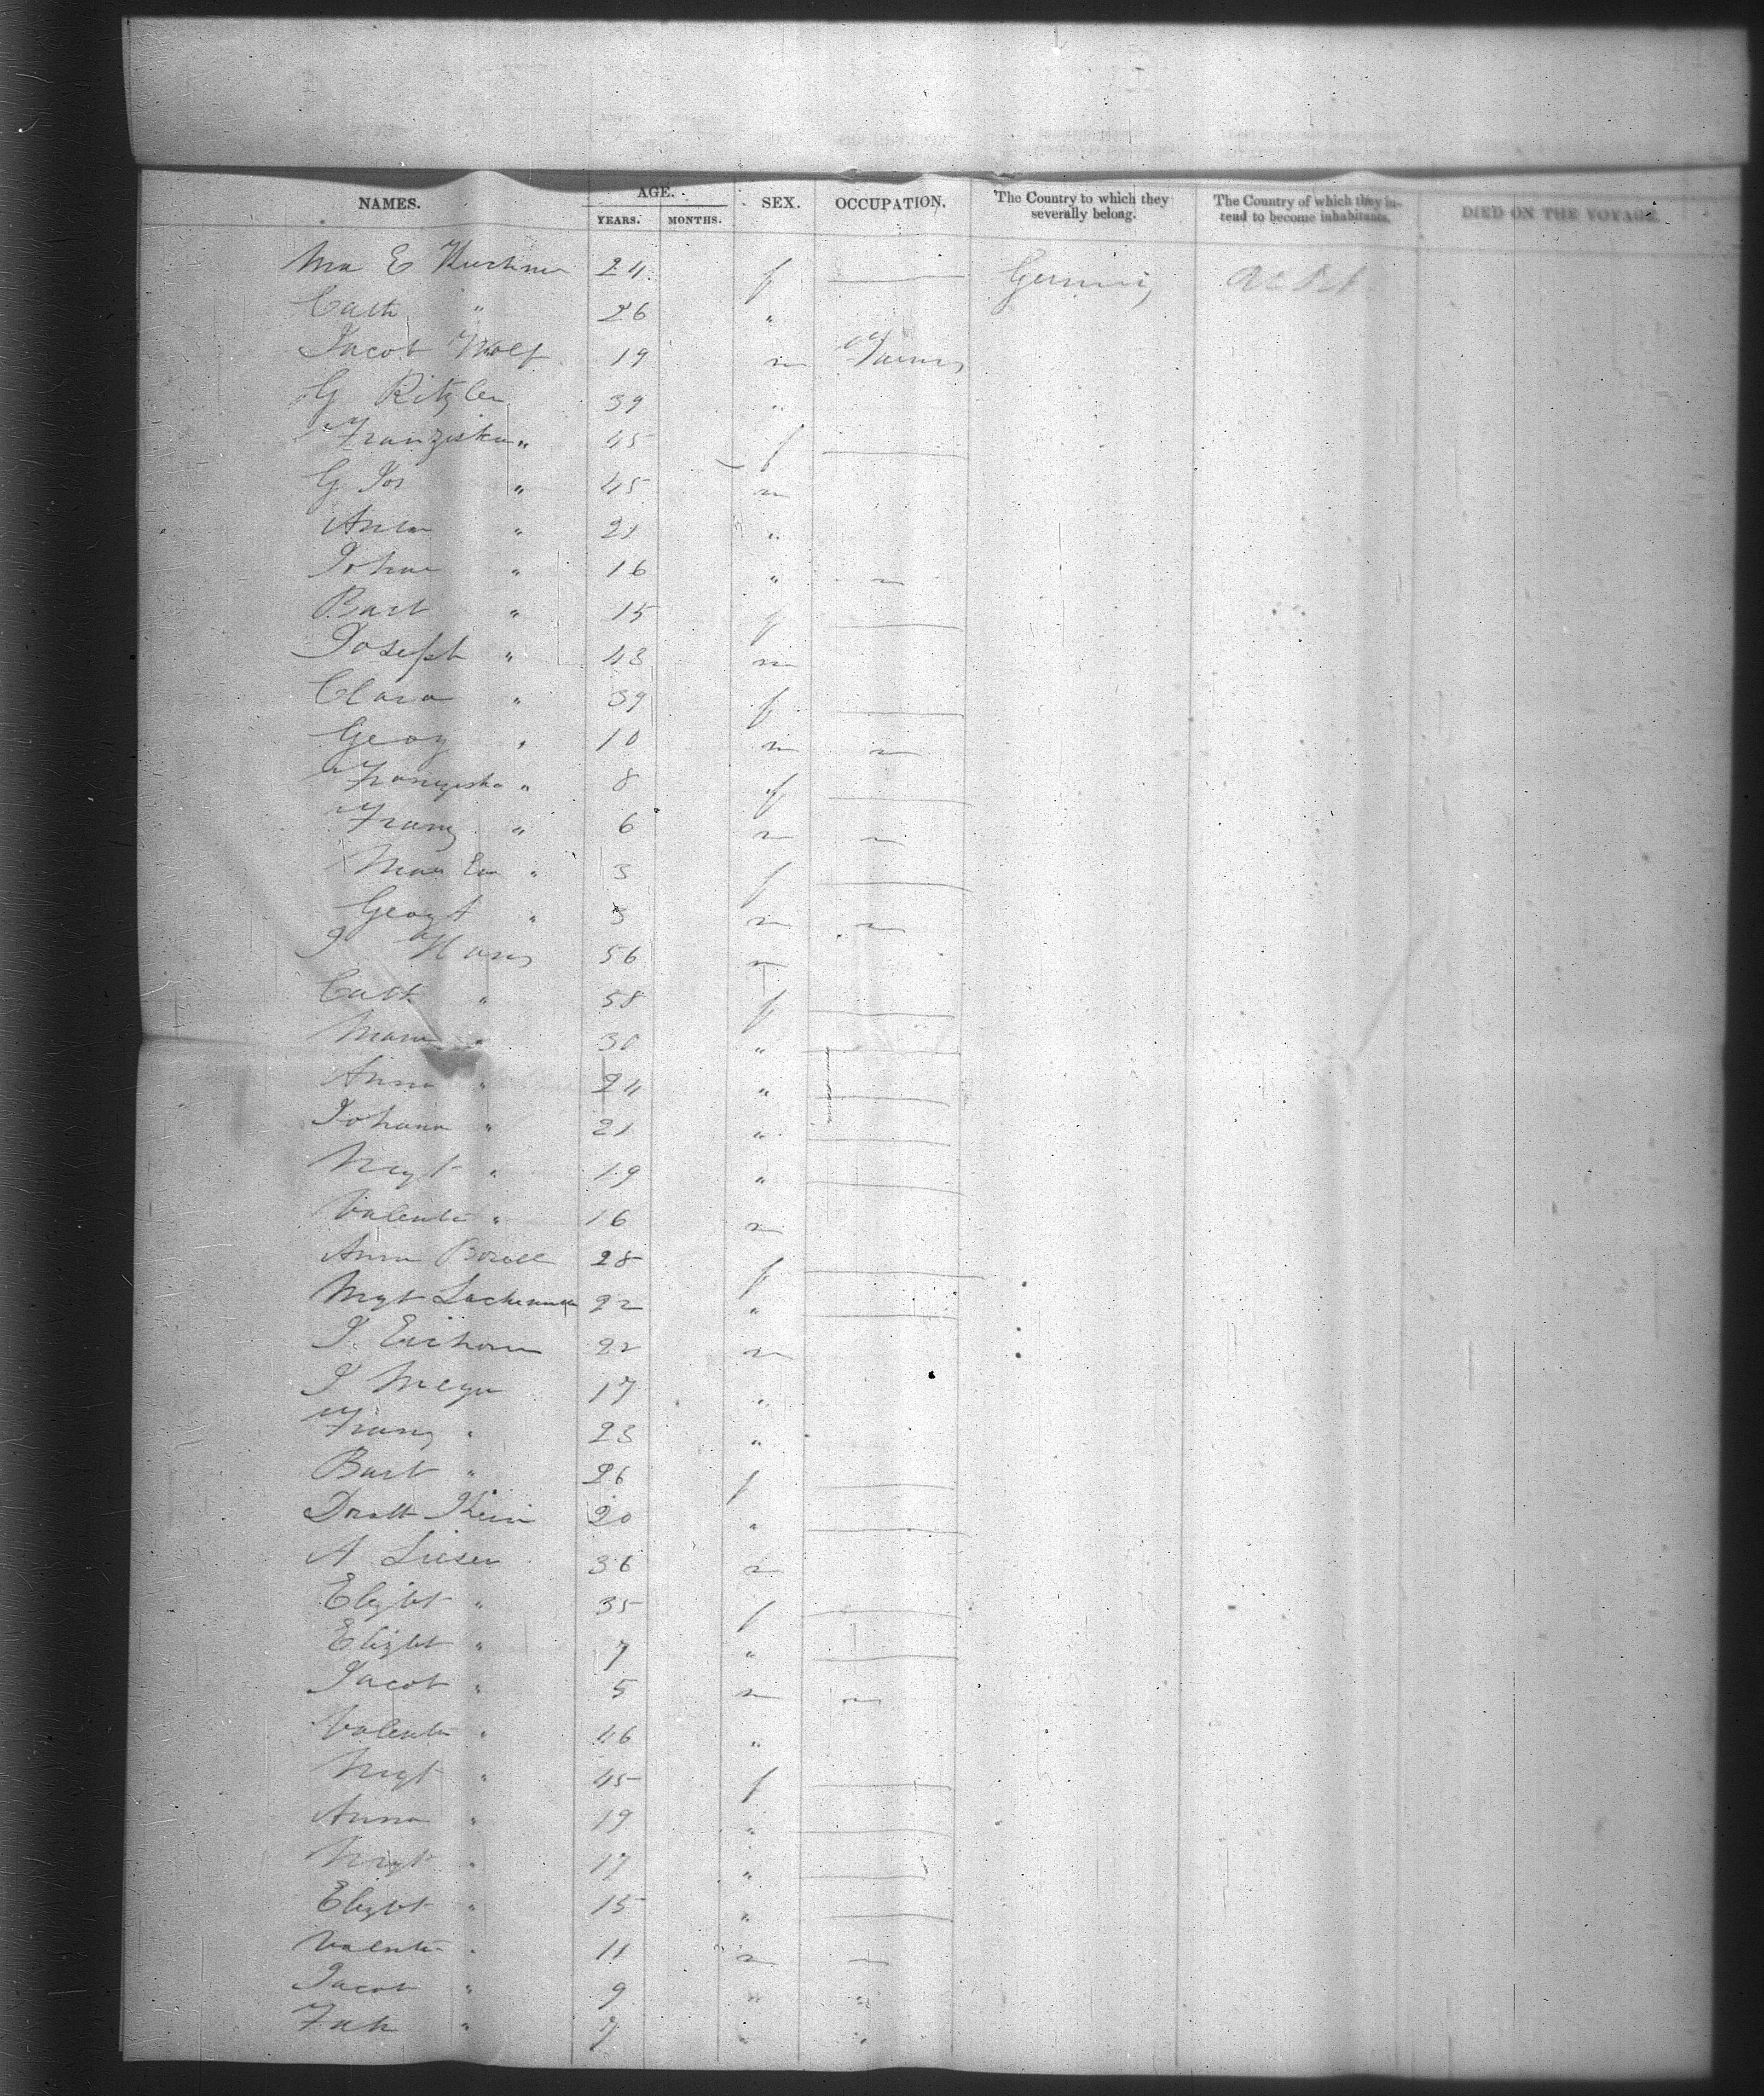 NAMES. AGE. YEARS. MONTHS. SEX. OCCUPATION. The Country to which they severally belong. The Country of which they intend to become inhabitants. DIED ON THE VOYAGE.
Ma E 24 f —
Cath " 26 "
Jacob Wolf 19 m
G Ritzler 39 "
Franziska " 45 f —
G Jos " 45 m
Anton " 21 "
Johan " 16 "
Barb " 15 f —
Joseph " 43 m
Clara " 39 f —
Georg " 10 m
Franziska " 8 f —
Franz " 6 m
Mar Eva " 3 f —
Georg A " 3 m
J 56 m
Cath " 58 f —
Maria " 30 " —
Anna " 24 " —
Johana " 21 " —
Mrgt " 19 " —
Valentin " 16 m
Anna 28 f —
Mrgt 22 " —
J. Eichorn 22 m
J Meyer 17 "
Franz " 23 "
Barb " 26 f —
20 " —
A Lieser 36 m
Elizbt " 35 f —
Elizbt " 7 " —
Jacob " 5 m
Valentin " 46 "
Mrgt " 45 f —
Anna " 19 " —
Mrgt " 17 " —
Elizbt " 15 " —
Valentin " 11 m
Jacob " 9 " "
" 7 " "